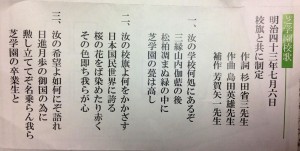 芝学園校歌
明治四十三年七月六日
校旗と共に制定
作詞 杉田省三先生
作曲 島田英雄先生
補作 芳賀矢一先生
一、汝の学校何処にあるぞ
三縁山内伽藍の後
松柏凋まぬ緑の中に
芝学園の甍は高し
二、汝の校旗よ何をかかざす
日本国民世界に誇る
桜の花をば染めたり赤く
その色即ち我らが心
三、汝の希望は如何にぞ語れ
日進月歩の御国の為に
勲したてでぞ名乗らん我ら
芝学園の卒業生と